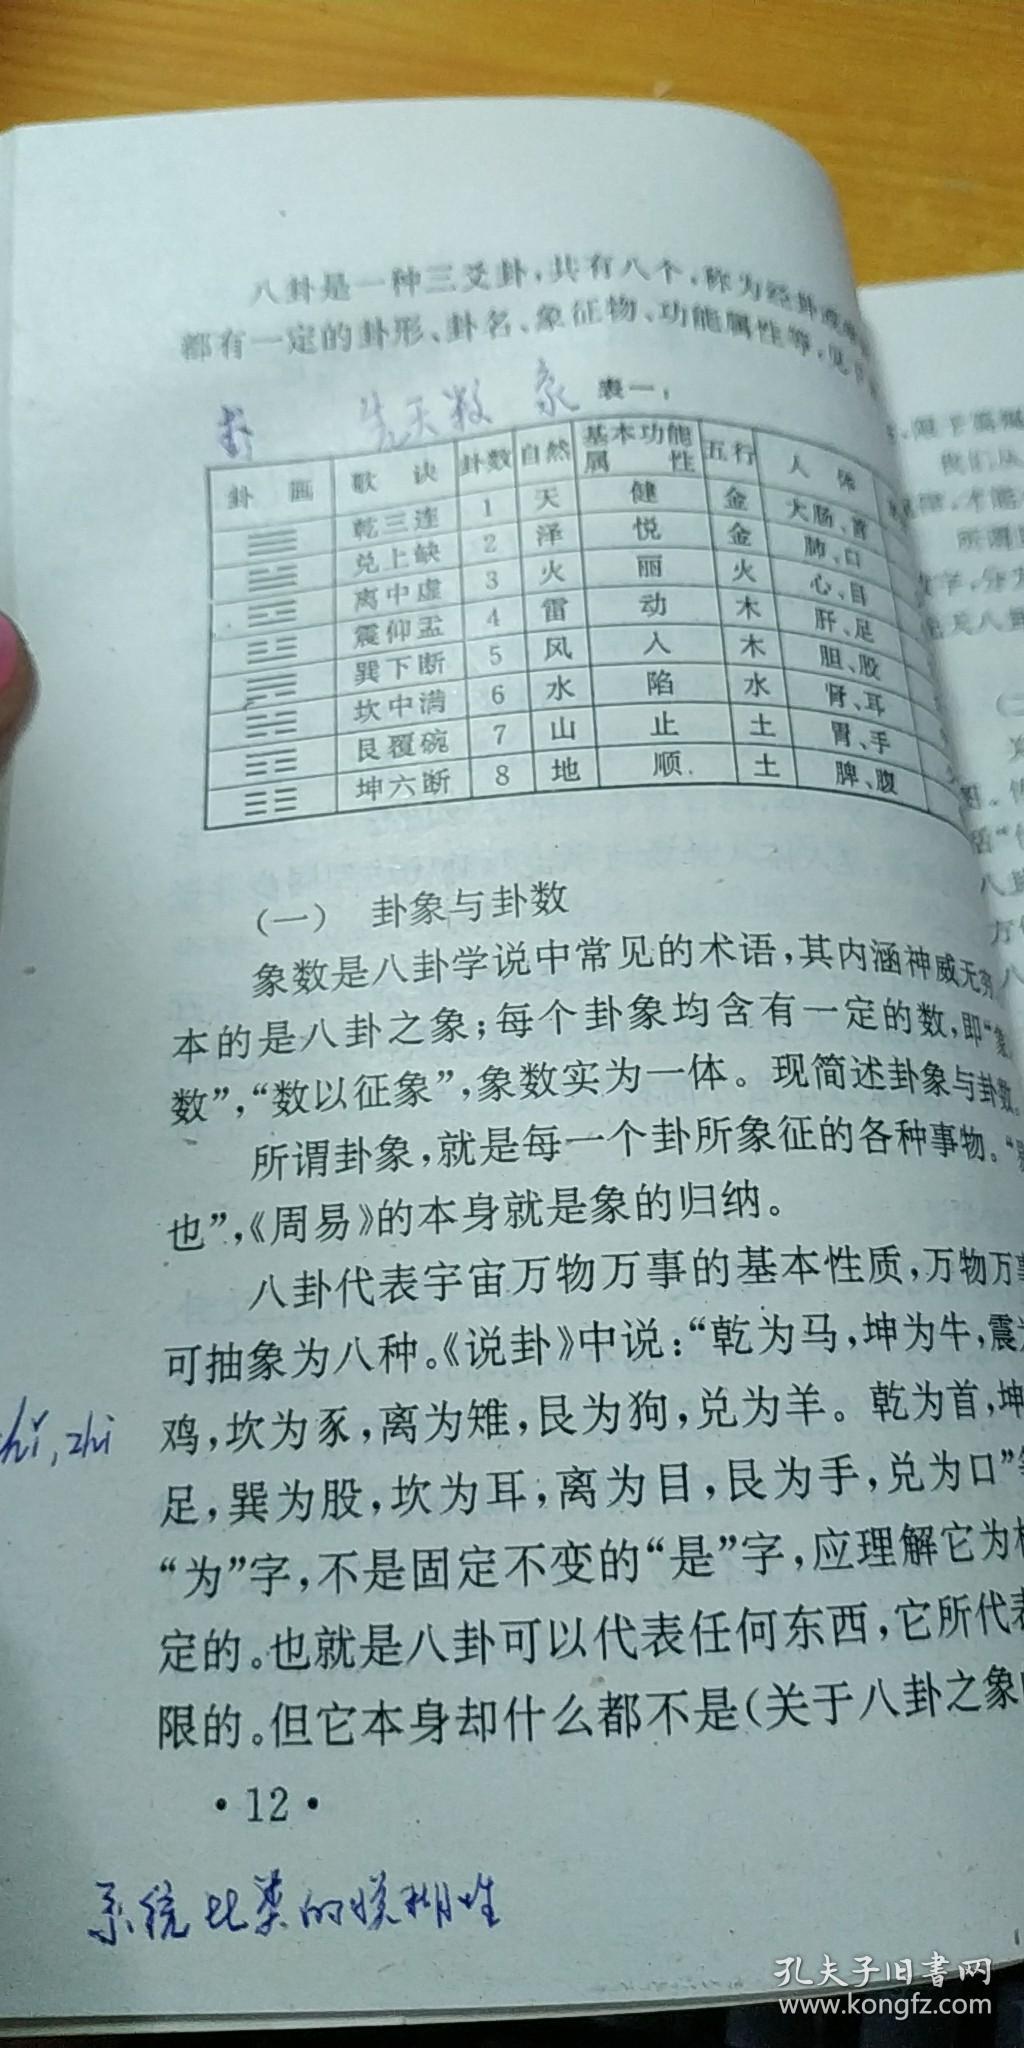 八卦是一种三爻卦，共有八个，称为经卦
都有一定的卦形、卦名、象征物、功能属性等，见
先天数 象 表一：
卦画 歌诀 卦数 自然 基本功能属性 五行 人体
☰ 乾三连 1 天 健 金 大肠、首
☱ 兑上缺 2 泽 悦 金 肺、口
☲ 离中虚 3 火 丽 火 心、目
☳ 震仰盂 4 雷 动 木 肝、足
☴ 巽下断 5 风 入 木 胆、股
☵ 坎中满 6 水 陷 水 肾、耳
☶ 艮覆碗 7 山 止 土 胃、手
☷ 坤六断 8 地 顺 土 脾、腹
(一) 卦象与卦数
象数是八卦学说中常见的术语，其内涵神威无穷
本的是八卦之象；每个卦象均含有一定的数，即“象
数”，“数以征象”，象数实为一体。现简述卦象与卦数。
所谓卦象，就是每一个卦所象征的各种事物。“
也”，《周易》的本身就是象的归纳。
八卦代表宇宙万物万事的基本性质，万物万事
可抽象为八种。《说卦》中说：“乾为马，坤为牛，震
鸡，坎为豕，离为雉，艮为狗，兑为羊。乾为首，坤
足，巽为股，坎为耳，离为目，艮为手，兑为口”
“为”字，不是固定不变的“是”字，应理解它为
定的。也就是八卦可以代表任何东西，它所代表
限的。但它本身却什么都不是(关于八卦之象
zhi
·12·
系统比类的模糊性
孔夫子旧书网
www.kongfz.com